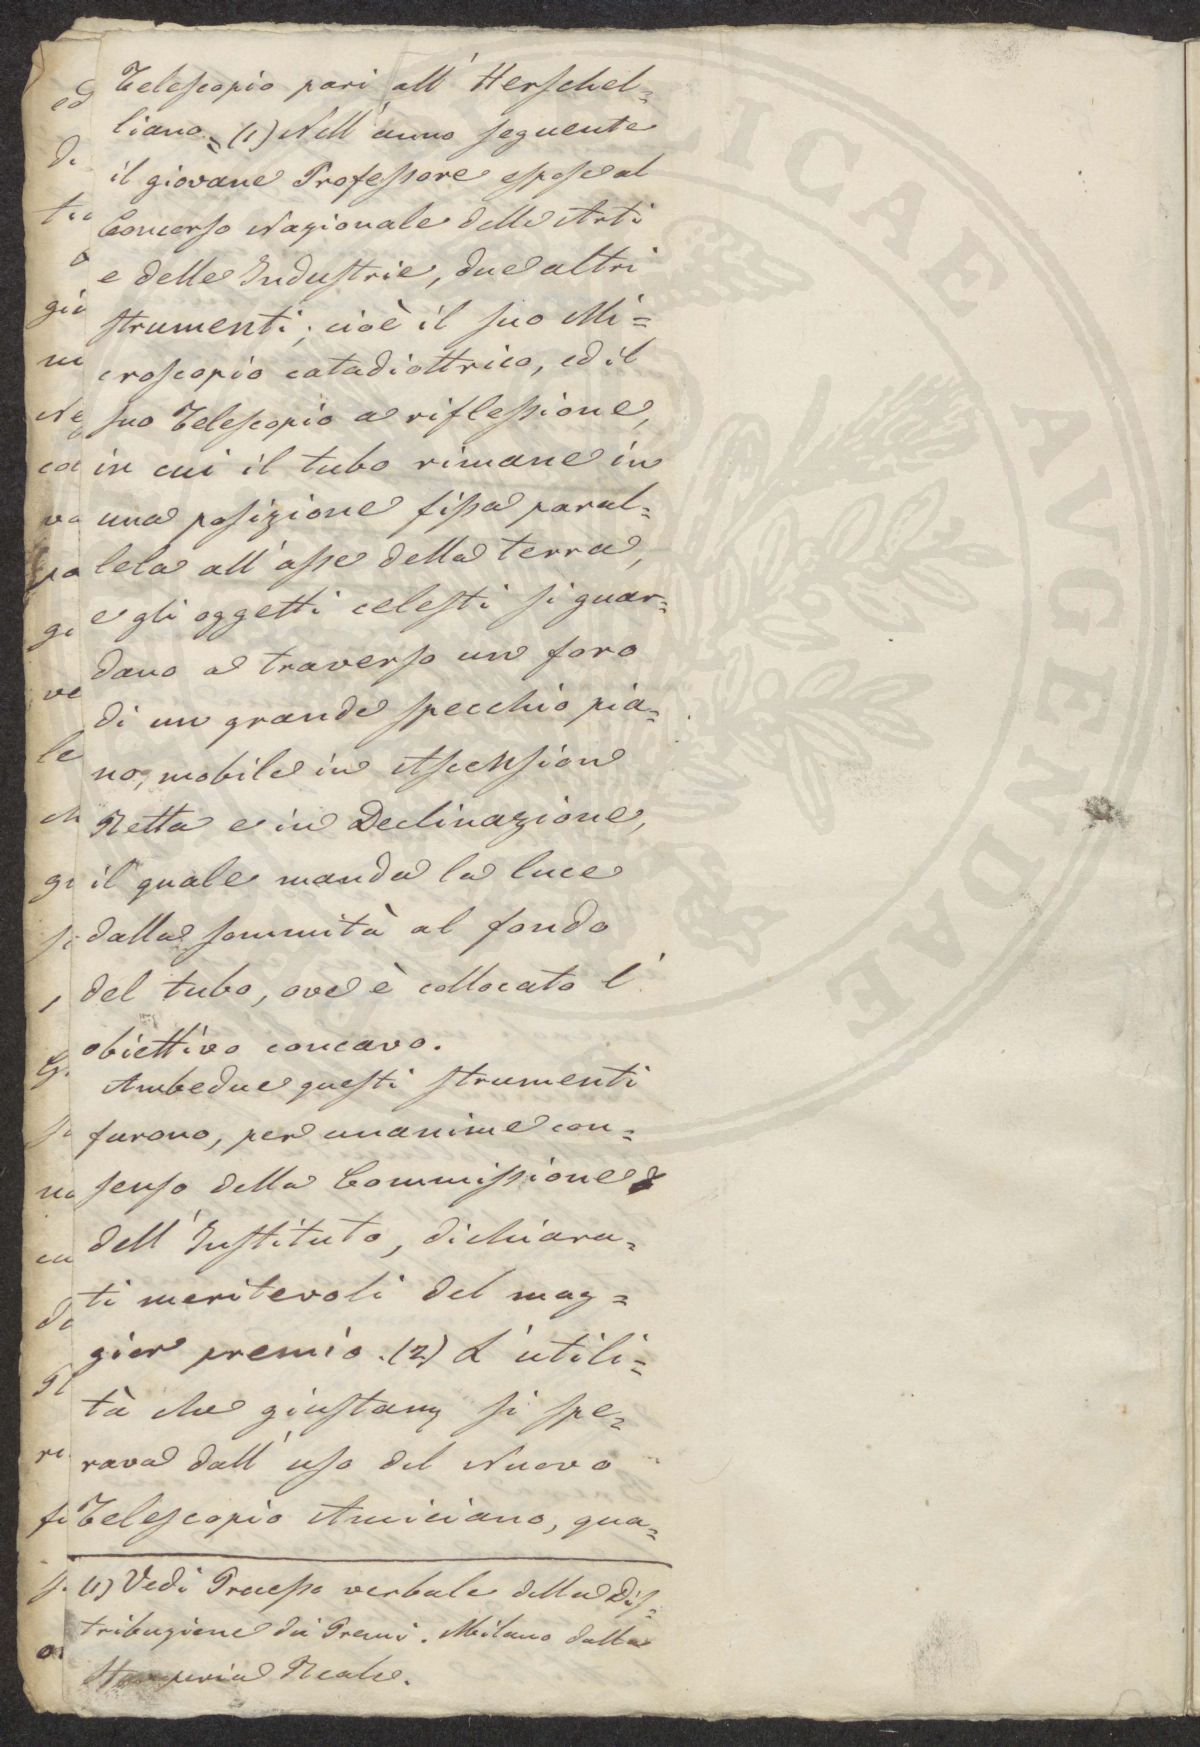 Telescopio pari all' Herschel=
liano = (1) Nell' anno seguente
il giovane Professore espose al
Concorso Nazionale delle Arti
e delle Industrie, due altri
strumenti; cioè il suo Mi=
croscopio catadiottrico, ed il
suo Telescopio a riflessione,
in cui il tubo rimane in
una posizione fissa paral=
lela all' asse della terra,
e gli oggetti celesti si guar=
dano a traverso un foro
di un grande specchio pia=
no, mobile in Ascension
Retta e in Declinazione,
il quale manda la luce
dalla sommità al fondo
del tubo, ove è collocato l'
obiettivo concavo.
Ambedue questi strumenti
furono, per unanime con=
senso della Commissione
dell' Instituto, dichiara=
ti meritevoli del mag=
gior premio. (2) L' utili=
tà che giustam si spe=
rava dall' uso del Nuovo
Telescopio Amiciano, qua=
(1) Vedi Processo verbale della Dis=
tribuzione dei Premi. Milano dalla
Stamperia Reale.
ed
di
tu
o
gio
ni
Ne
va
po
gi
ve
le
gi
si
na
di
ri
PUBLICAE AUGENDAE